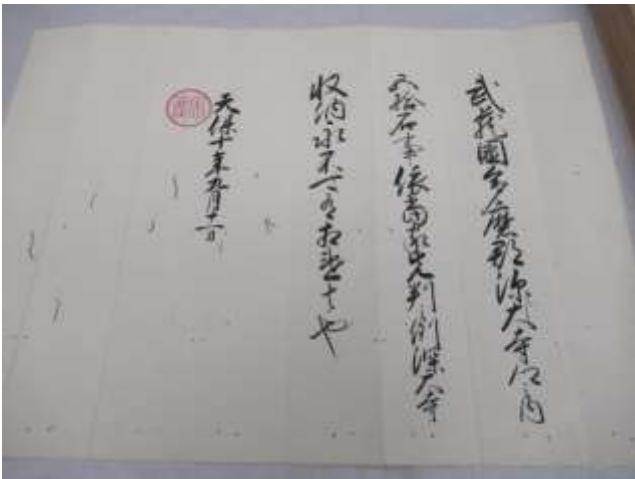 武蔵國多磨郡深大寺之内
五拾石事依當家先判之例深大寺
収納永不可有相違者也
天保十年九月十一日